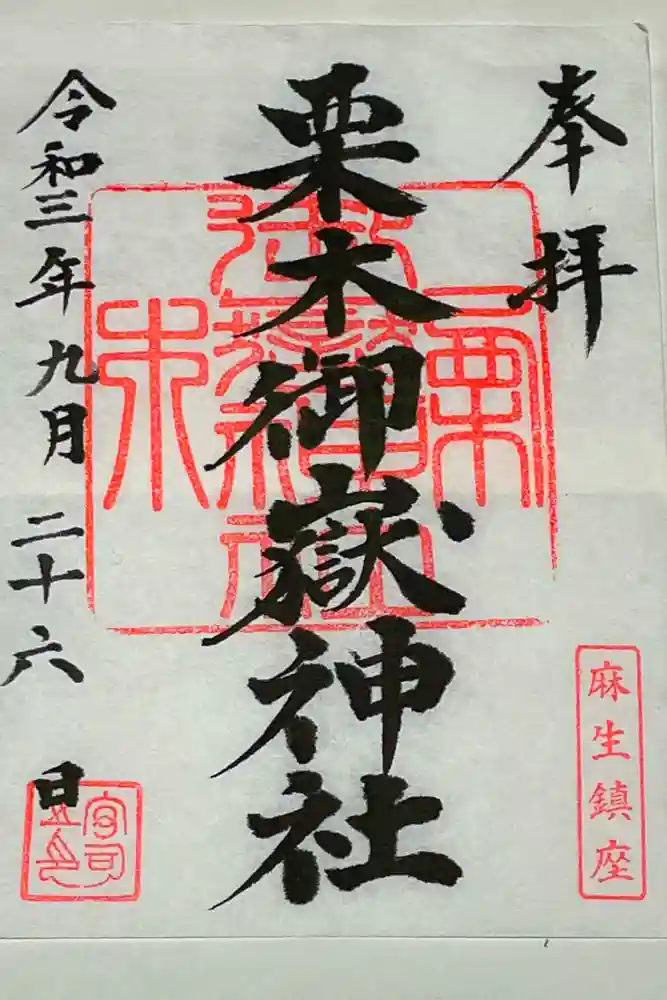 奉拝
麻生鎮座
栗木御嶽神社
令和三年九月二十六日